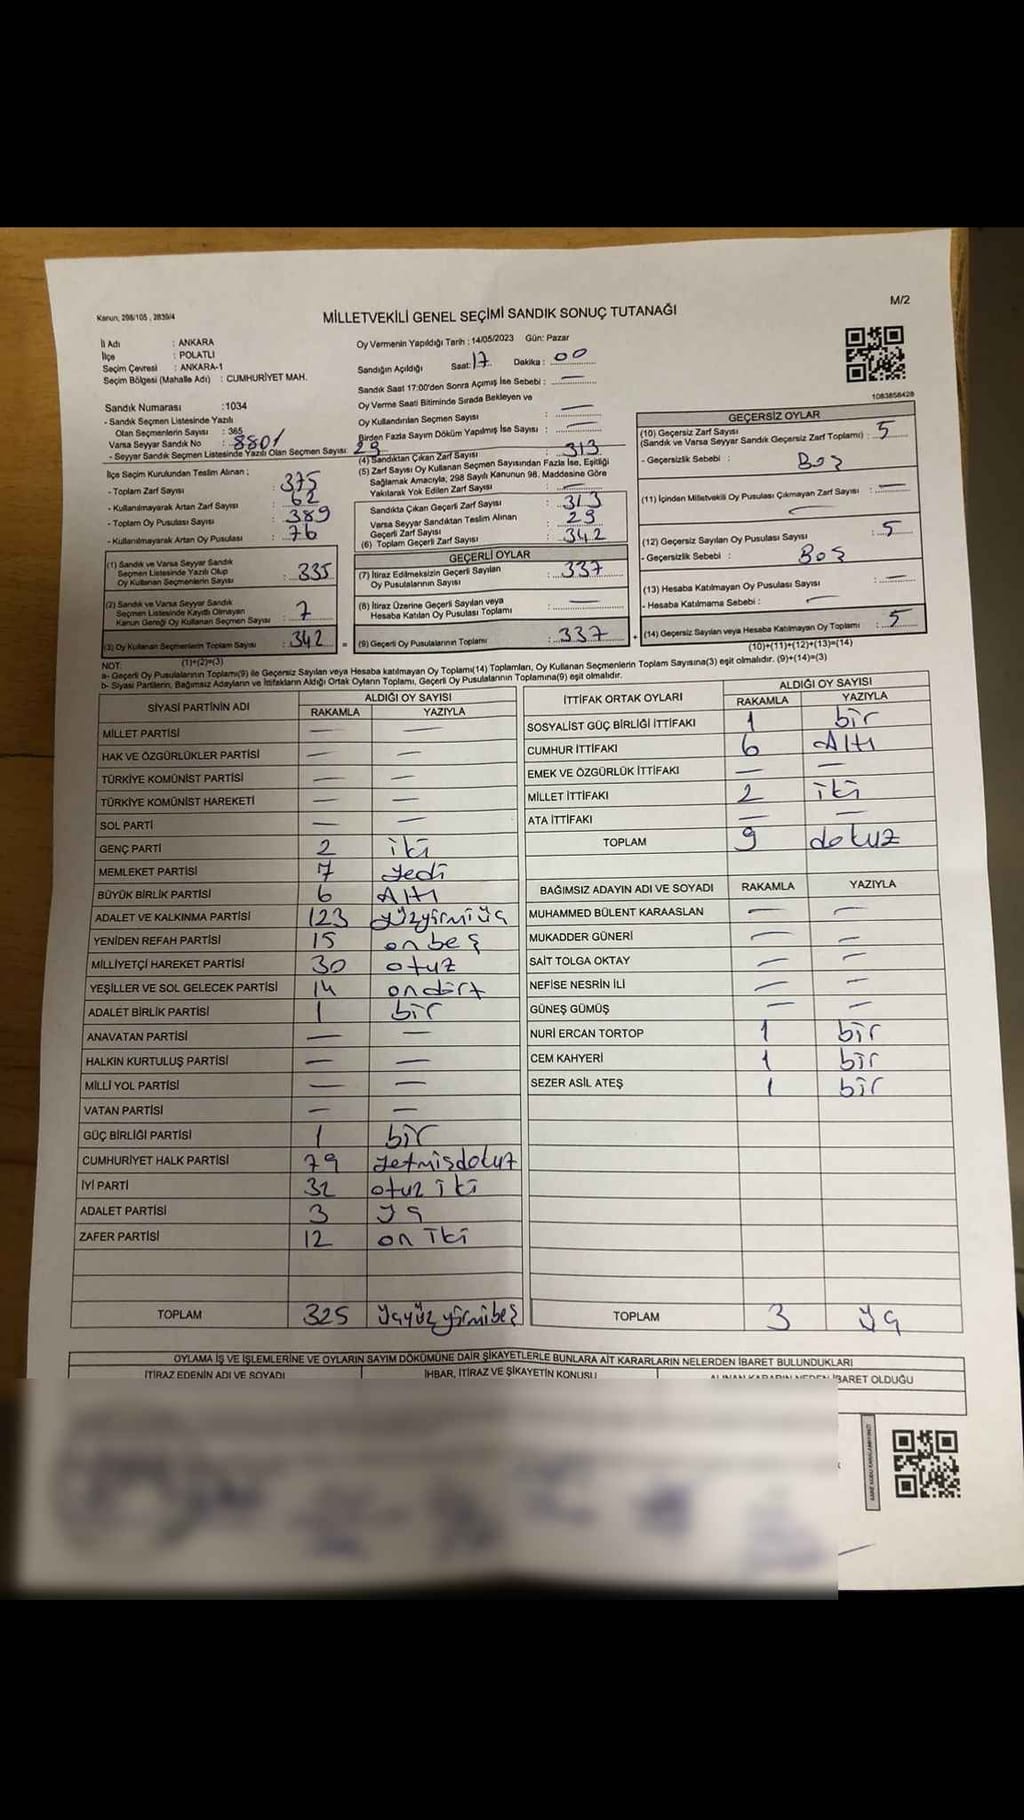 Kanun, 298/105 , 2839/4
M/2
MİLLETVEKİLİ GENEL SEÇİMİ SANDIK SONUÇ TUTANAĞI
İl Adı : ANKARA
İlçe : POLATLI
Seçim Çevresi : ANKARA-1
Seçim Bölgesi (Mahalle Adı) : CUMHURİYET MAH.
Sandık Numarası :1034
- Sandık Seçmen Listesinde Yazılı
Olan Seçmenlerin Sayısı : 365
Varsa Seyyar Sandık No : 8801
- Seyyar Sandık Seçmen Listesinde Yazılı Olan Seçmen Sayısı: 29
İlçe Seçim Kurulundan Teslim Alınan ;
- Toplam Zarf Sayısı : 375
- Kullanılmayarak Artan Zarf Sayısı : 62
- Toplam Oy Pusulası Sayısı : 389
- Kullanılmayarak Artan Oy Pusulası : 76
(1) Sandık ve Varsa Seyyar Sandık
Seçmen Listesinde Yazılı Olup
Oy Kullanan Seçmenlerin Sayısı : 335
(2) Sandık ve Varsa Seyyar Sandık
Seçmen Listesinde Kayıtlı Olmayan
Kanun Gereği Oy Kullanan Seçmen Sayısı : 7
(3) Oy Kullanan Seçmenlerin Toplam Sayısı : 342 =
(1)+(2)=(3)
Oy Vermenin Yapıldığı Tarih : 14/05/2023 Gün: Pazar
Sandığın Açıldığı Saat: 17 Dakika : 00
Sandık Saat 17:00'den Sonra Açımış İse Sebebi : —
Oy Verme Saati Bitiminde Sırada Bekleyen ve
Oy Kullandırılan Seçmen Sayısı : —
Birden Fazla Sayım Döküm Yapılmış İse Sayısı : —
(4) Sandıktan Çıkan Zarf Sayısı : 313
(5) Zarf Sayısı Oy Kullanan Seçmen Sayısından Fazla İse, Eşitliği
Sağlamak Amacıyla, 298 Sayılı Kanunun 98. Maddesine Göre
Yakılarak Yok Edilen Zarf Sayısı : —
Sandıkta Çıkan Geçerli Zarf Sayısı : 313
Varsa Seyyar Sandıktan Teslim Alınan
Geçerli Zarf Sayısı : 29
(6) Toplam Geçerli Zarf Sayısı : 342
GEÇERLİ OYLAR
(7) İtiraz Edilmeksizin Geçerli Sayılan
Oy Pusulalarının Sayısı : 337
(8) İtiraz Üzerine Geçerli Sayılan veya
Hesaba Katılan Oy Pusulası Toplamı : —
(9) Geçerli Oy Pusulalarının Toplamı : 337 +
1083858428
GEÇERSİZ OYLAR
(10) Geçersiz Zarf Sayısı
(Sandık ve Varsa Seyyar Sandık Geçersiz Zarf Toplamı) : 5
- Geçersizlik Sebebi : BOŞ
(11) İçinden Milletvekili Oy Pusulası Çıkmayan Zarf Sayısı : —
(12) Geçersiz Sayılan Oy Pusulası Sayısı : 5
- Geçersizlik Sebebi : BOŞ
(13) Hesaba Katılmayan Oy Pusulası Sayısı : —
- Hesaba Katılmama Sebebi : —
(14) Geçersiz Sayılan veya Hesaba Katılmayan Oy Toplamı : 5
(10)+(11)+(12)+(13)=(14)
NOT:
a- Geçerli Oy Pusulalarının Toplamı(9) ile Geçersiz Sayılan veya Hesaba katılmayan Oy Toplamı(14) Toplamları, Oy Kullanan Seçmenlerin Toplam Sayısına(3) eşit olmalıdır. (9)+(14)=(3)
b- Siyasi Partilerin, Bağımsız Adayların ve İttifakların Aldığı Ortak Oyların Toplamı, Geçerli Oy Pusulalarının Toplamına(9) eşit olmalıdır.
SİYASİ PARTİNİN ADI ALDIĞI OY SAYISI
RAKAMLA YAZIYLA
MİLLET PARTİSİ — —
HAK VE ÖZGÜRLÜKLER PARTİSİ — —
TÜRKİYE KOMÜNİST PARTİSİ — —
TÜRKİYE KOMÜNİST HAREKETİ — —
SOL PARTİ — —
GENÇ PARTİ 2 iki
MEMLEKET PARTİSİ 7 yedi
BÜYÜK BİRLİK PARTİSİ 6 Altı
ADALET VE KALKINMA PARTİSİ 123 yüzyirmiüç
YENİDEN REFAH PARTİSİ 15 onbeş
MİLLİYETÇİ HAREKET PARTİSİ 30 otuz
YEŞİLLER VE SOL GELECEK PARTİSİ 14 ondört
ADALET BİRLİK PARTİSİ 1 bir
ANAVATAN PARTİSİ — —
HALKIN KURTULUŞ PARTİSİ — —
MİLLİ YOL PARTİSİ — —
VATAN PARTİSİ — —
GÜÇ BİRLİĞİ PARTİSİ 1 bir
CUMHURİYET HALK PARTİSİ 79 yetmişdokuz
İYİ PARTİ 32 otuz iki
ADALET PARTİSİ 3 üç
ZAFER PARTİSİ 12 on iki
TOPLAM 325 üçyüzyirmibeş
İTTİFAK ORTAK OYLARI ALDIĞI OY SAYISI
RAKAMLA YAZIYLA
SOSYALİST GÜÇ BİRLİĞİ İTTİFAKI 1 bir
CUMHUR İTTİFAKI 6 Altı
EMEK VE ÖZGÜRLÜK İTTİFAKI — —
MİLLET İTTİFAKI 2 iki
ATA İTTİFAKI — —
TOPLAM 9 dokuz
BAĞIMSIZ ADAYIN ADI VE SOYADI RAKAMLA YAZIYLA
MUHAMMED BÜLENT KARAASLAN — —
MUKADDER GÜNERİ — —
SAİT TOLGA OKTAY — —
NEFİSE NESRİN İLİ — —
GÜNEŞ GÜMÜŞ — —
NURİ ERCAN TORTOP 1 bir
CEM KAHYERİ 1 bir
SEZER ASİL ATEŞ 1 bir
TOPLAM 3 üç
OYLAMA İŞ VE İŞLEMLERİNE VE OYLARIN SAYIM DÖKÜMÜNE DAİR ŞİKAYETLERLE BUNLARA AİT KARARLARIN NELERDEN İBARET BULUNDUKLARI
İTİRAZ EDENİN ADI VE SOYADI İHBAR, İTİRAZ VE ŞİKAYETİN KONUSU ALINAN KARARIN NEDEN İBARET OLDUĞU